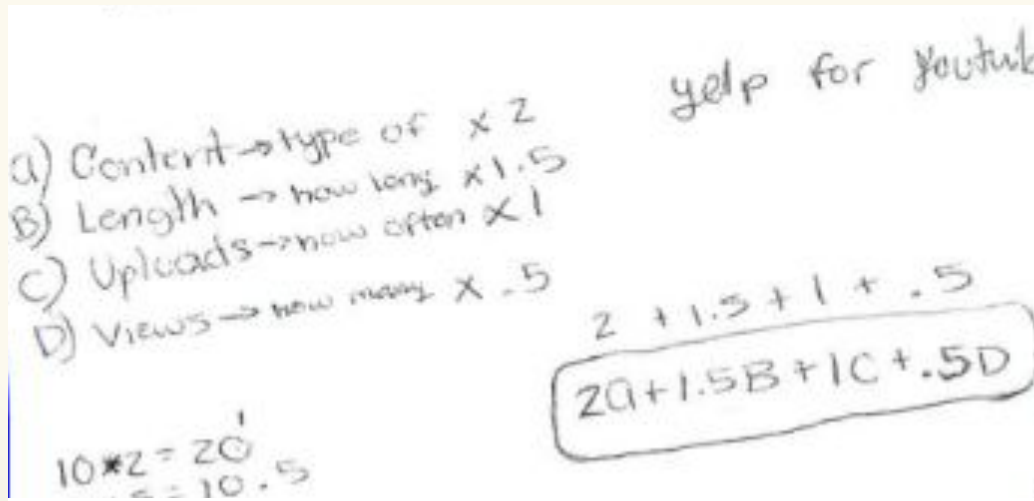 yelp for Youtub
a) Content → type of x 2
B) Length → how long x1.5
C) Uploads → how often x 1
D) Views → how many x .5
2 + 1.5 + 1 + .5
2a+1.5B+1C+.5D
10*2=20
=10.5